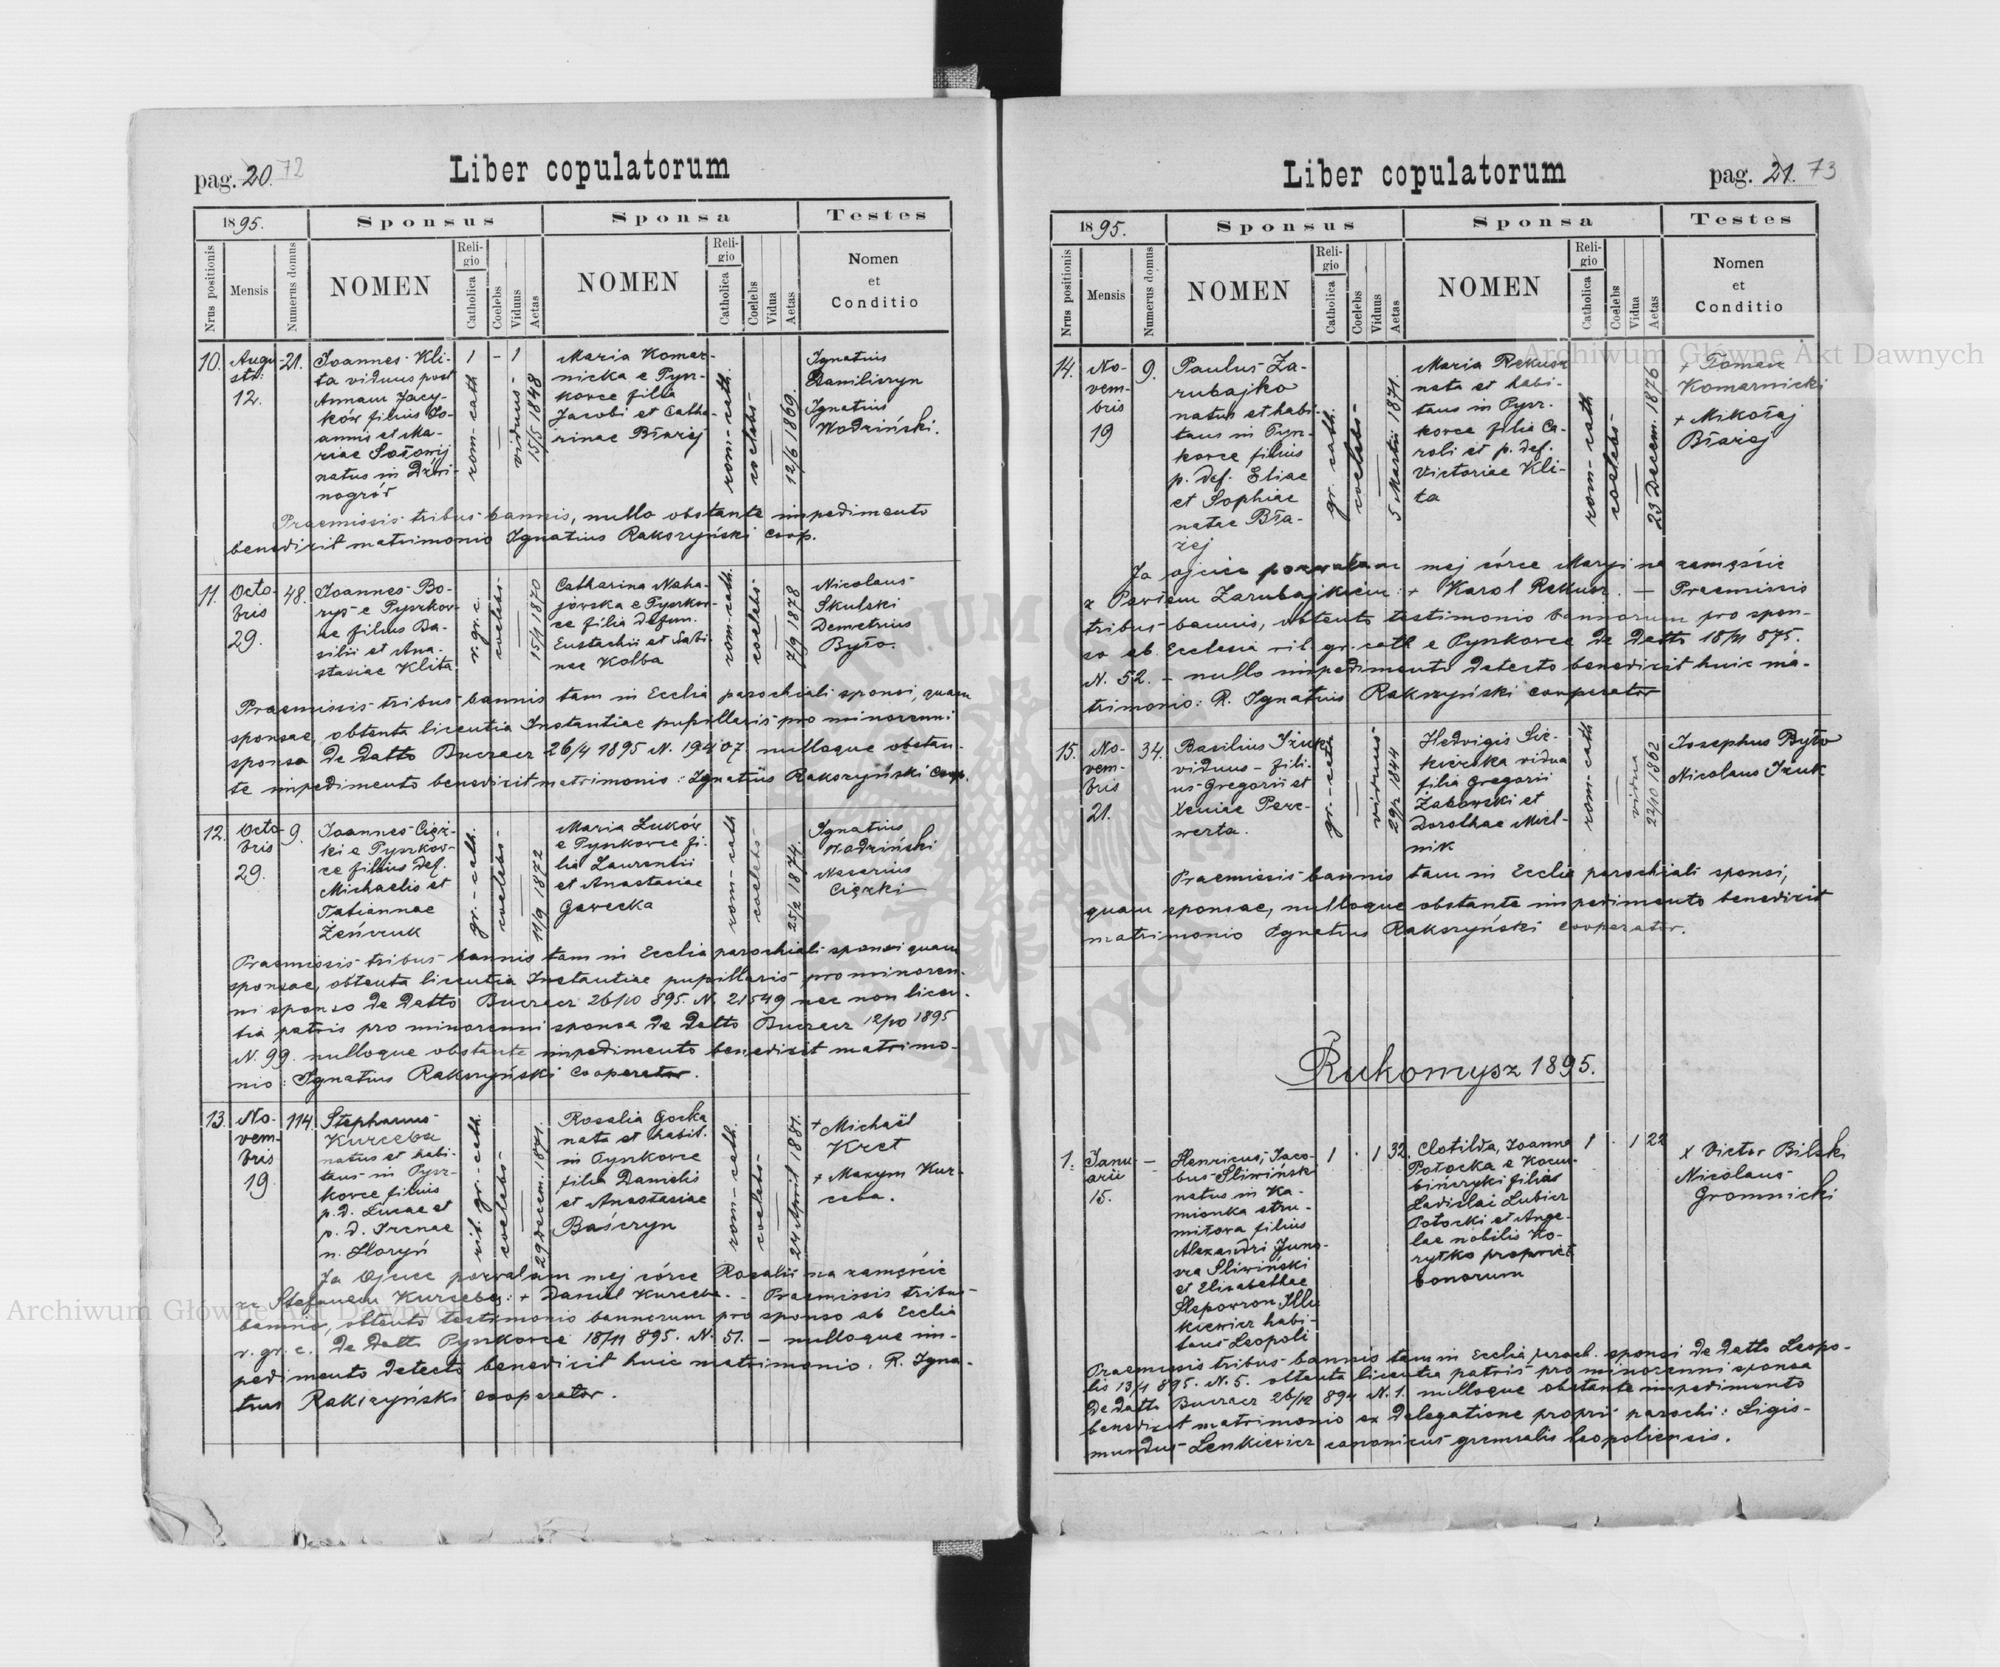 pag. 20. 72
Liber copulatorum
1895.
Sponsus
Sponsa
Testes
Nrus positionis
Mensis
Numerus domus
NOMEN
Religio
Catholica
Coelebs
Viduus
Aetas
NOMEN
Religio
Catholica
Coelebs
Vidua
Aetas
Nomen
et
Conditio
10.
Augu-
sti:
12.
21.
Joannes Kli-
ta viduus post
Annam Jacy-
ków filius Jo-
annis et Ma-
riae
natus in Dźwi-
nogród
1
rom-cath
-
1
viduus-
15/5 1848
Maria Komar-
nicka e Pysz-
kovce filia
Jacobi et Catha-
rinae Błażej
rom-cath.
coelebs-
12/6 1869
Ignatius
Daniliszyn
Ignatius
Wodziński.
Praemissis tribus bannis, nullo obstante impedimento
benedixit matrimonio Ignatius Rakszyński Coop.
11.
Octo-
bris
29.
48.
Joannes Bo-
rys e Pyszkov-
ce filius Ba-
silii et Ana-
stasiae Klita
r. gr. c.
coelebs-
15/1 1870
Catharina Naha-
jovska e Pyszkov-
ce filia defun.
Eustachii et Sabi-
nae Kolba
rom-cath.
coelebs-
7/9 1878
Nicolaus
Skulski
Demetrius
Było.
Praemissis tribus bannis tam in Ecclia parochiali sponsi, quam
sponsae, obtenta licentia Instantiae pupillaris pro minorenni
sponsa de datto Buczacz 26/4 1895 N. 19407. nulloque obstan-
te impedimento benedixit matrimonio: Ignatius Rakszyński Coop.
12.
Octo-
bris
29.
9.
Joannes Cięż-
ki e Pyszkov-
ce filius def.
Michaelis et
Tatiannae
Żeńczuk
gr.-cath.
coelebs-
11/9 1872
Maria Luków
e Pyszkovce fi-
lia Laurentii
et Anastasiae
Gavecka
rom-cath
coelebs-
25/2 1874.
Ignatius
Wodziński
Nazarius
Ciężki
Praemissis tribus bannis tam in Ecclia parochiali sponsi quam
sponsae, obtenta licentia Instantiae pupillaris pro minoren-
ni sponso de datto Buczacz 26/10 895. N. 21549 nec non licen-
tia patris pro minorenni sponsa de datto Buczacz 12/10 1895
N. 99. nulloque obstante impedimento benedixit matrimo-
nio: Ignatius Rakszyński Cooperator.
13.
No-
vem-
bris
19.
114.
Stephanus
Kurceba
natus et habi-
tans in Pysz-
kovce filius
p. d. Lucae et
p. d. Irenae
n. Horyń
rit. gr.-cath.
coelebs-
29 decem. 1871.
Rosalia Gocka
nata et habit.
in Pyszkovce
filia Danielis
et Anastasiae
Baśczyn
rom-cath.
coelebs-
24 April 1881.
+ Michaël
Kret
+ Maxym Kur-
ceba.
Ja Ojciec pozwalam mej córce Rosalii na zamęście
ze Stefanem Kurcebą: + Daniel Kurceba. - Praemissis tribus
bannis, obtento testimonio bannorum pro sponso ab Ecclia
r. gr. c. de datto Pyszkovce 18/11 895. N. 51. - nulloque im-
pedimento detecto benedixit huic matrimonio. R. Igna-
tius Rakszyński cooperator.
pag. 21. 73
Liber copulatorum
1895.
Sponsus
Sponsa
Testes
Nrus positionis
Mensis
Numerus domus
NOMEN
Religio
Catholica
Coelebs
Viduus
Aetas
NOMEN
Religio
Catholica
Coelebs
Vidua
Aetas
Nomen
et
Conditio
14.
No-
vem-
bris
19
9.
Paulus Za-
rubajko
natus et habi-
tans in Pysz-
kovce filius
p. def. Eliae
et Sophiae
natae Bła-
żej
gr. cath.
coelebs-
5 Martii 1871.
Maria Rekusz
nata et habi-
tans in Pysz-
kovce filia Ca-
roli et p. def.
Victoriae Kli-
ta
rom-cath
coelebs-
23 Decem. 1876
+ Roman
Komarnicki
+ Mikołaj
Błażej
Ja ojciec pozwalam mej córce Maryi na zamęście
z Pawłem Zarubajkiem: + Karol Rekusz. - Praemissis
tribus bannis, obtento testimonio bannorum pro spon-
so ab Ecclesia rit. gr. cath e Pyszkovce de datto 18/11 875.
N. 52. - nullo impedimento detecto benedixit huic ma-
trimonio: R. Ignatius Rakszyński cooperator
15.
No-
vem-
bris
21.
34.
Basilius Iżuk
viduus - fili-
us Gregorii et
Xeniae Pere-
werta.
gr.-cath
viduus-
29/2 1844
Hedvigis Sie-
kierska vidua
filia Gregorii
Żabowski et
Dorothae Miel-
nik
rom-cath
vidua
22/10 1862
Josephus Było
Nicolaus Iżuk
Praemissis bannis tam in Ecclia parochiali sponsi,
quam sponsae, nulloque obstante impedimento benedixit
matrimonio Ignatius Rakszyński cooperator.
Rukomysz 1895.
1.
Janu-
arii
15.
-
Henricus, Jaco-
bus Sliwiński
natus in Ka-
mionka stru-
miłova filius
Alexandri Juno-
sza Sliwiński
et Elisabethae
Slepowron Illu-
kiewicz habi-
tans Leopoli
1
1
32.
Clotilda, Joanna
Potocka e Kociu-
bińczyki filias
Ladislai Lubicz
Potocki et Ange-
lae nobilis Ko-
rytko propriet
bonorum
1
1
22
x Victor Bilski
Nicolaus
Gromnicki
Praemissis tribus bannis tam in Ecclia paroch. sponsi de datto Leopo-
lis 13/1 895. N. 5. obtenta licentia patris pro minorenni sponsa
de datto Buczacz 26/12 894 N. 1. nulloque obstante impedimento
benedixit matrimonio ex delegatione proprii parochi: Sigis-
mundus Lenkiewicz canonicus gremialis leopoliensis.
Archiwum Główne Akt Dawnych
Archiwum Główne Akt Dawnych